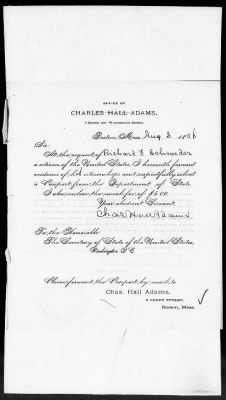 OFFICE OF
CHARLES HALL ADAMS,
Boston, Mass. Aug 3 1886
Sir:
At the request of Richard F. Schneider
a citizen of the United States, I herewith forward
evidence of his citizenship and respectfully solicit
a Passport from the Department of State.
I also enclose the usual fee of $5.00
Your obedient Servant,
Chas Hall Adams
To the Honorable
The Secretary of State of the United States,
Washington, D.C.
Please forward the Passport by mail to
Chas. Hall Adams,
STREET,
Boston, Mass.